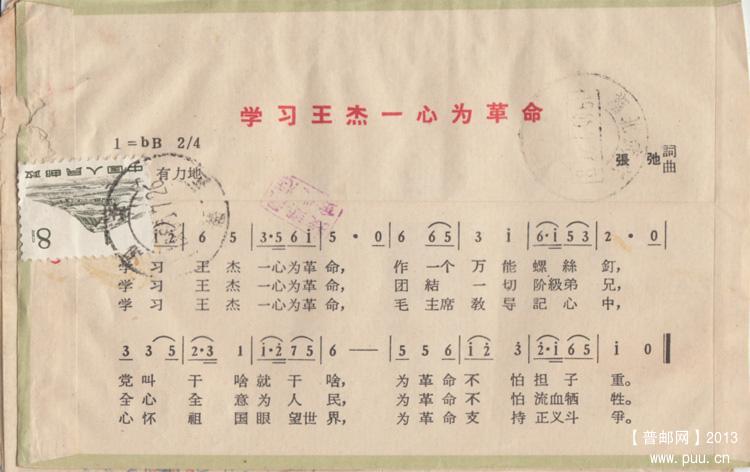 学习王杰一心为革命
1=bB 2/4
張弛 詞曲
有力地
中国人民邮政
8
i 2 | 6 5 | 3·5 6 i | 5 · 0 | 6 6 5 | 3 i | 6·i 5 3 | 2 · 0 |
学习王杰一心为革命，作一个万能螺絲釘，
学习王杰一心为革命，团結一切阶級弟兄，
学习王杰一心为革命，毛主席敎导記心中，
3 3 5 | 2·3 1 | i·2 7 5 | 6 — — | 5 5 6 | i 2 3 | 2·i 6 5 | i 0 ‖
党叫干啥就干啥，为革命不怕担子重。
全心全意为人民，为革命不怕流血牺牲。
心怀祖国眼望世界，为革命支持正义斗爭。
【普邮网】2013
www.puu.cn